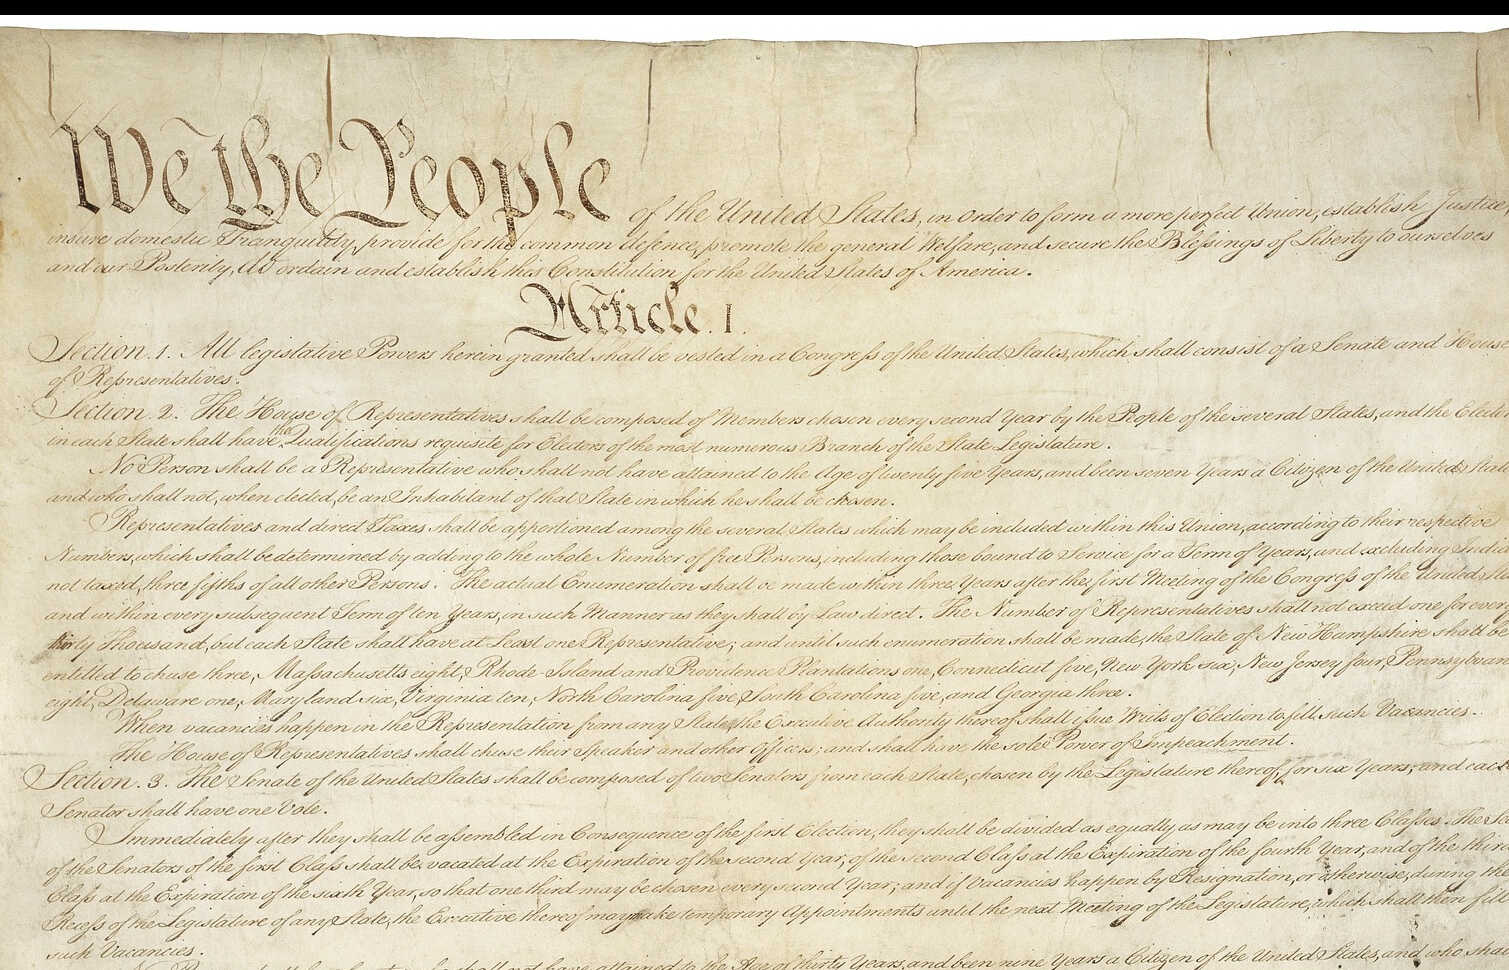 We the People of the United States, in Order to form a more perfect Union, establish Justice,
insure domestic Tranquility, provide for the common defence, promote the general Welfare, and secure the Blessings of Liberty to ourselves
and our Posterity, do ordain and establish this Constitution for the United States of America.
Article. I.
Section. 1. All legislative Powers herein granted shall be vested in a Congress of the United States, which shall consist of a Senate and House
of Representatives.
Section. 2. The House of Representatives shall be composed of Members chosen every second Year by the People of the several States, and the Elec
in each State shall have the Qualifications requisite for Electors of the most numerous Branch of the State Legislature.
No Person shall be a Representative who shall not have attained to the Age of twenty five Years, and been seven Years a Citizen of the United State
and who shall not, when elected, be an Inhabitant of that State in which he shall be chosen.
Representatives and direct Taxes shall be apportioned among the several States which may be included within this Union, according to their respective
Numbers, which shall be determined by adding to the whole Number of free Persons, including those bound to Service for a Term of Years, and excluding Indi
not taxed, three fifths of all other Persons. The actual Enumeration shall be made within three Years after the first Meeting of the Congress of the United Sta
and within every subsequent Term of ten Years, in such Manner as they shall by Law direct. The Number of Representatives shall not exceed one for ever
thirty Thousand, but each State shall have at Least one Representative; and until such enumeration shall be made, the State of New Hampshire shall be
entitled to chuse three, Massachusetts eight, Rhode-Island and Providence Plantations one, Connecticut five, New-York six, New Jersey four, Pennsylvan
eight, Delaware one, Maryland six, Virginia ten, North Carolina five, South Carolina five, and Georgia three.
When vacancies happen in the Representation from any State, the Executive Authority thereof shall issue Writs of Election to fill such Vacancies.
The House of Representatives shall chuse their Speaker and other Officers; and shall have the sole Power of Impeachment.
Section. 3. The Senate of the United States shall be composed of two Senators from each State, chosen by the Legislature thereof, for six Years; and each
Senator shall have one Vote.
Immediately after they shall be assembled in Consequence of the first Election, they shall be divided as equally as may be into three Classes. The Sea
of the Senators of the first Class shall be vacated at the Expiration of the second Year, of the second Class at the Expiration of the fourth Year, and of the third
Class at the Expiration of the sixth Year, so that one third may be chosen every second Year; and if Vacancies happen by Resignation, or otherwise, during the
Recess of the Legislature of any State, the Executive thereof may make temporary Appointments until the next Meeting of the Legislature, which shall then fill
such Vacancies.
No Person shall be a Senator who shall not have attained to the Age of thirty Years, and been nine Years a Citizen of the United States, and who sha